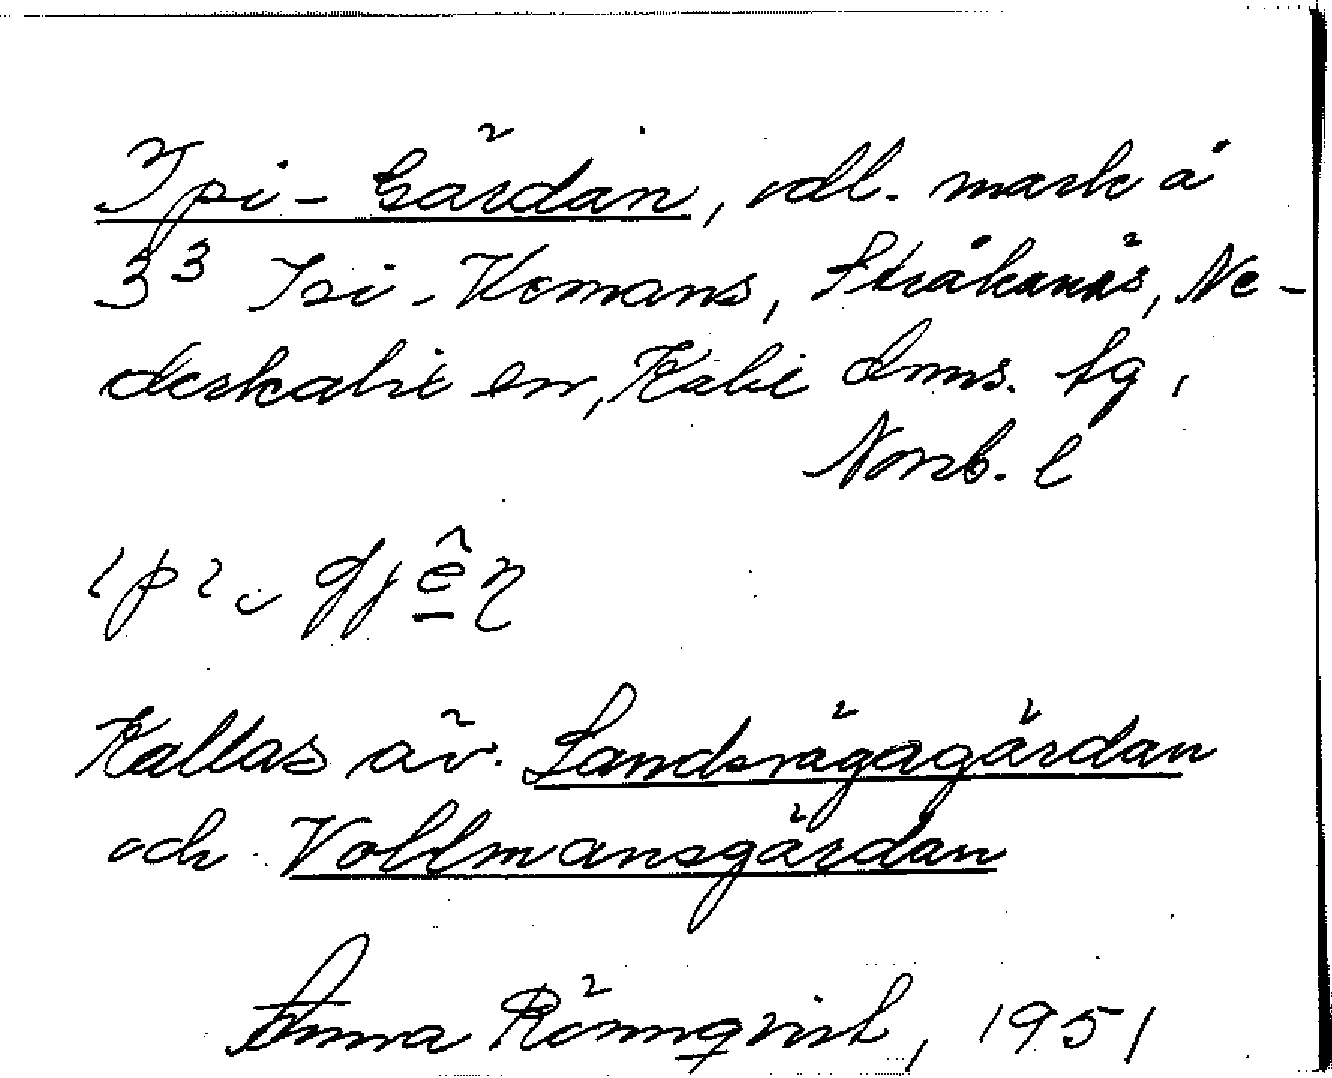 Ipi-Gärdan, odl. mark å
3³ Isi-Komans, Stråkanäs, Ne-
derkalix sn, Kalix dms. tg,
Norrb. l
ɩpɩ‿gjên
Kallas äv. Landsvägagärdan
och Vollmansgärdan
Anna Rönnqvist, 1951